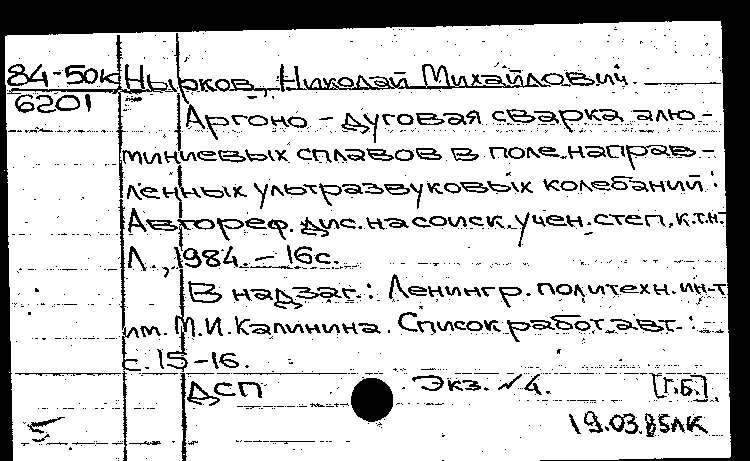 84-50к Нырков, Николай Михайлович.
6201
Аргоно-дуговая сварка алю-
миниевых сплавов в поле направ-
ленных ультразвуковых колебаний:
Автореф. дис. на соиск. учен. степ. к.т.н.-
Л., 1984. - 16с.
В надзаг.: Ленингр. политехн. ин-т
им. М.И. Калинина. Список работ авт.:
с. 15-16.
ДСП Экз. №4. [Г.Б.]
19.03.85ЛК